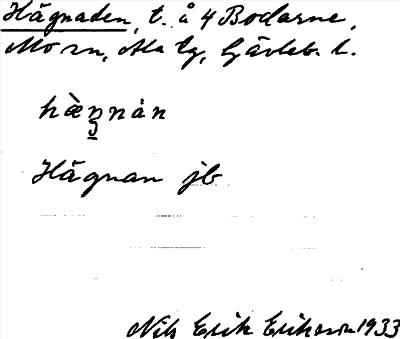 Hägnaden, t. å 4 Bodarne,
Mo sn, Ala tg, Gävleb. l.
hæ̀ŋnån
Hägnan jb
Nils Erik Eriksson 1933